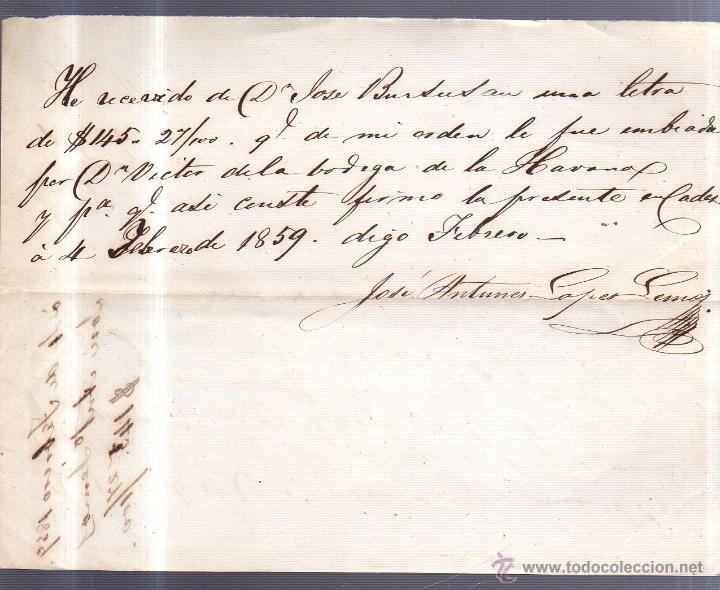 He recevido de Dn Jose Bursus en una letra
de $145„ 27/100. qe. de mi orden le fue embiada
por Dn Victor de la bodega de la Havana
y pa. qe. asi conste firmo la presente en Cades
à 4 Febrero de 1859. digo Febrero—
José Antunes Lopes Lemos
$ 145
todocoleccion.net